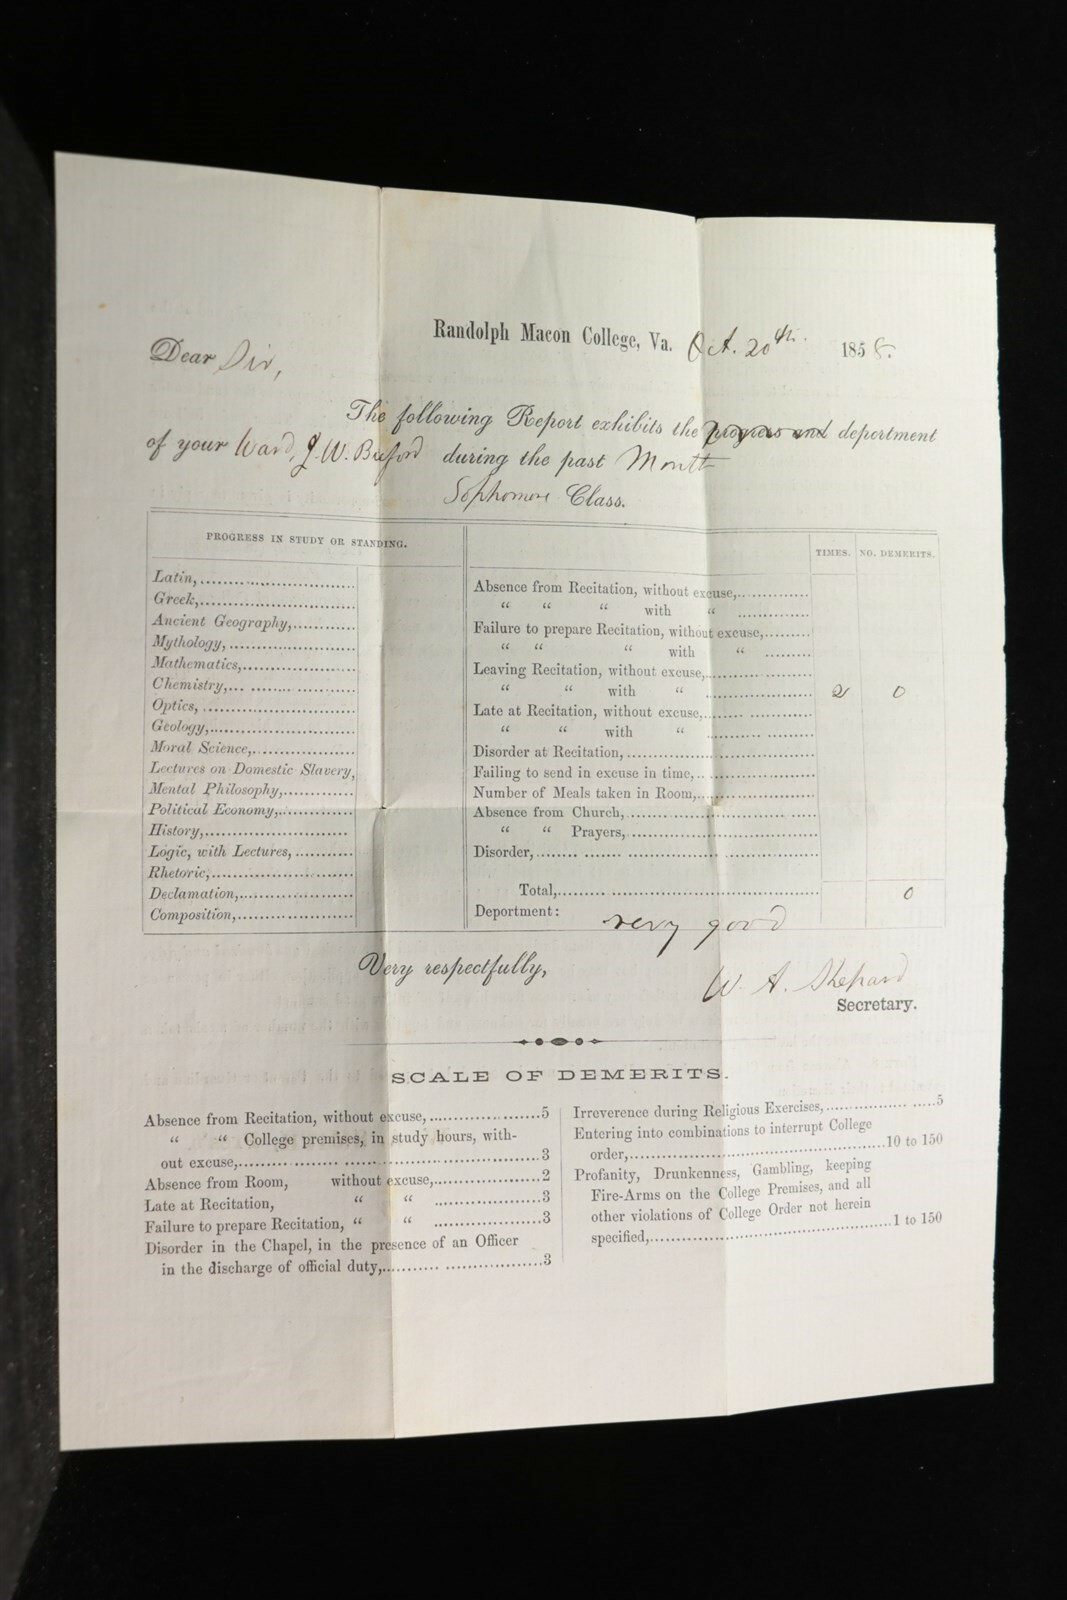 Randolph Macon College, Va. Oct. 20th. 1858.
Dear Sir,
The following Report exhibits the progress and deportment
of your Ward, J. W. Buford during the past Month
Sophomore Class.
PROGRESS IN STUDY OR STANDING.
Latin,
Greek,
Ancient Geography,
Mythology,
Mathematics,
Chemistry,
Optics,
Geology,
Moral Science,
Lectures on Domestic Slavery,
Mental Philosophy,
Political Economy,
History,
Logic, with Lectures,
Rhetoric,
Declamation,
Composition,
TIMES. NO. DEMERITS.
Absence from Recitation, without excuse,
“ “ “ with “
Failure to prepare Recitation, without excuse,
“ “ “ with “
Leaving Recitation, without excuse,
“ “ with “ 2 0
Late at Recitation, without excuse,
“ “ with “
Disorder at Recitation,
Failing to send in excuse in time,
Number of Meals taken in Room,
Absence from Church,
“ “ Prayers,
Disorder,
Total, 0
Deportment: very good
Very respectfully,
W. A. Shepard
Secretary.
SCALE OF DEMERITS.
Absence from Recitation, without excuse, 5
“ “ College premises, in study hours, with-
out excuse, 3
Absence from Room, without excuse, 2
Late at Recitation, “ “ 3
Failure to prepare Recitation, “ “ 3
Disorder in the Chapel, in the presence of an Officer
in the discharge of official duty, 3
Irreverence during Religious Exercises, 5
Entering into combinations to interrupt College
order, 10 to 150
Profanity, Drunkenness, Gambling, keeping
Fire-Arms on the College Premises, and all
other violations of College Order not herein
specified, 1 to 150